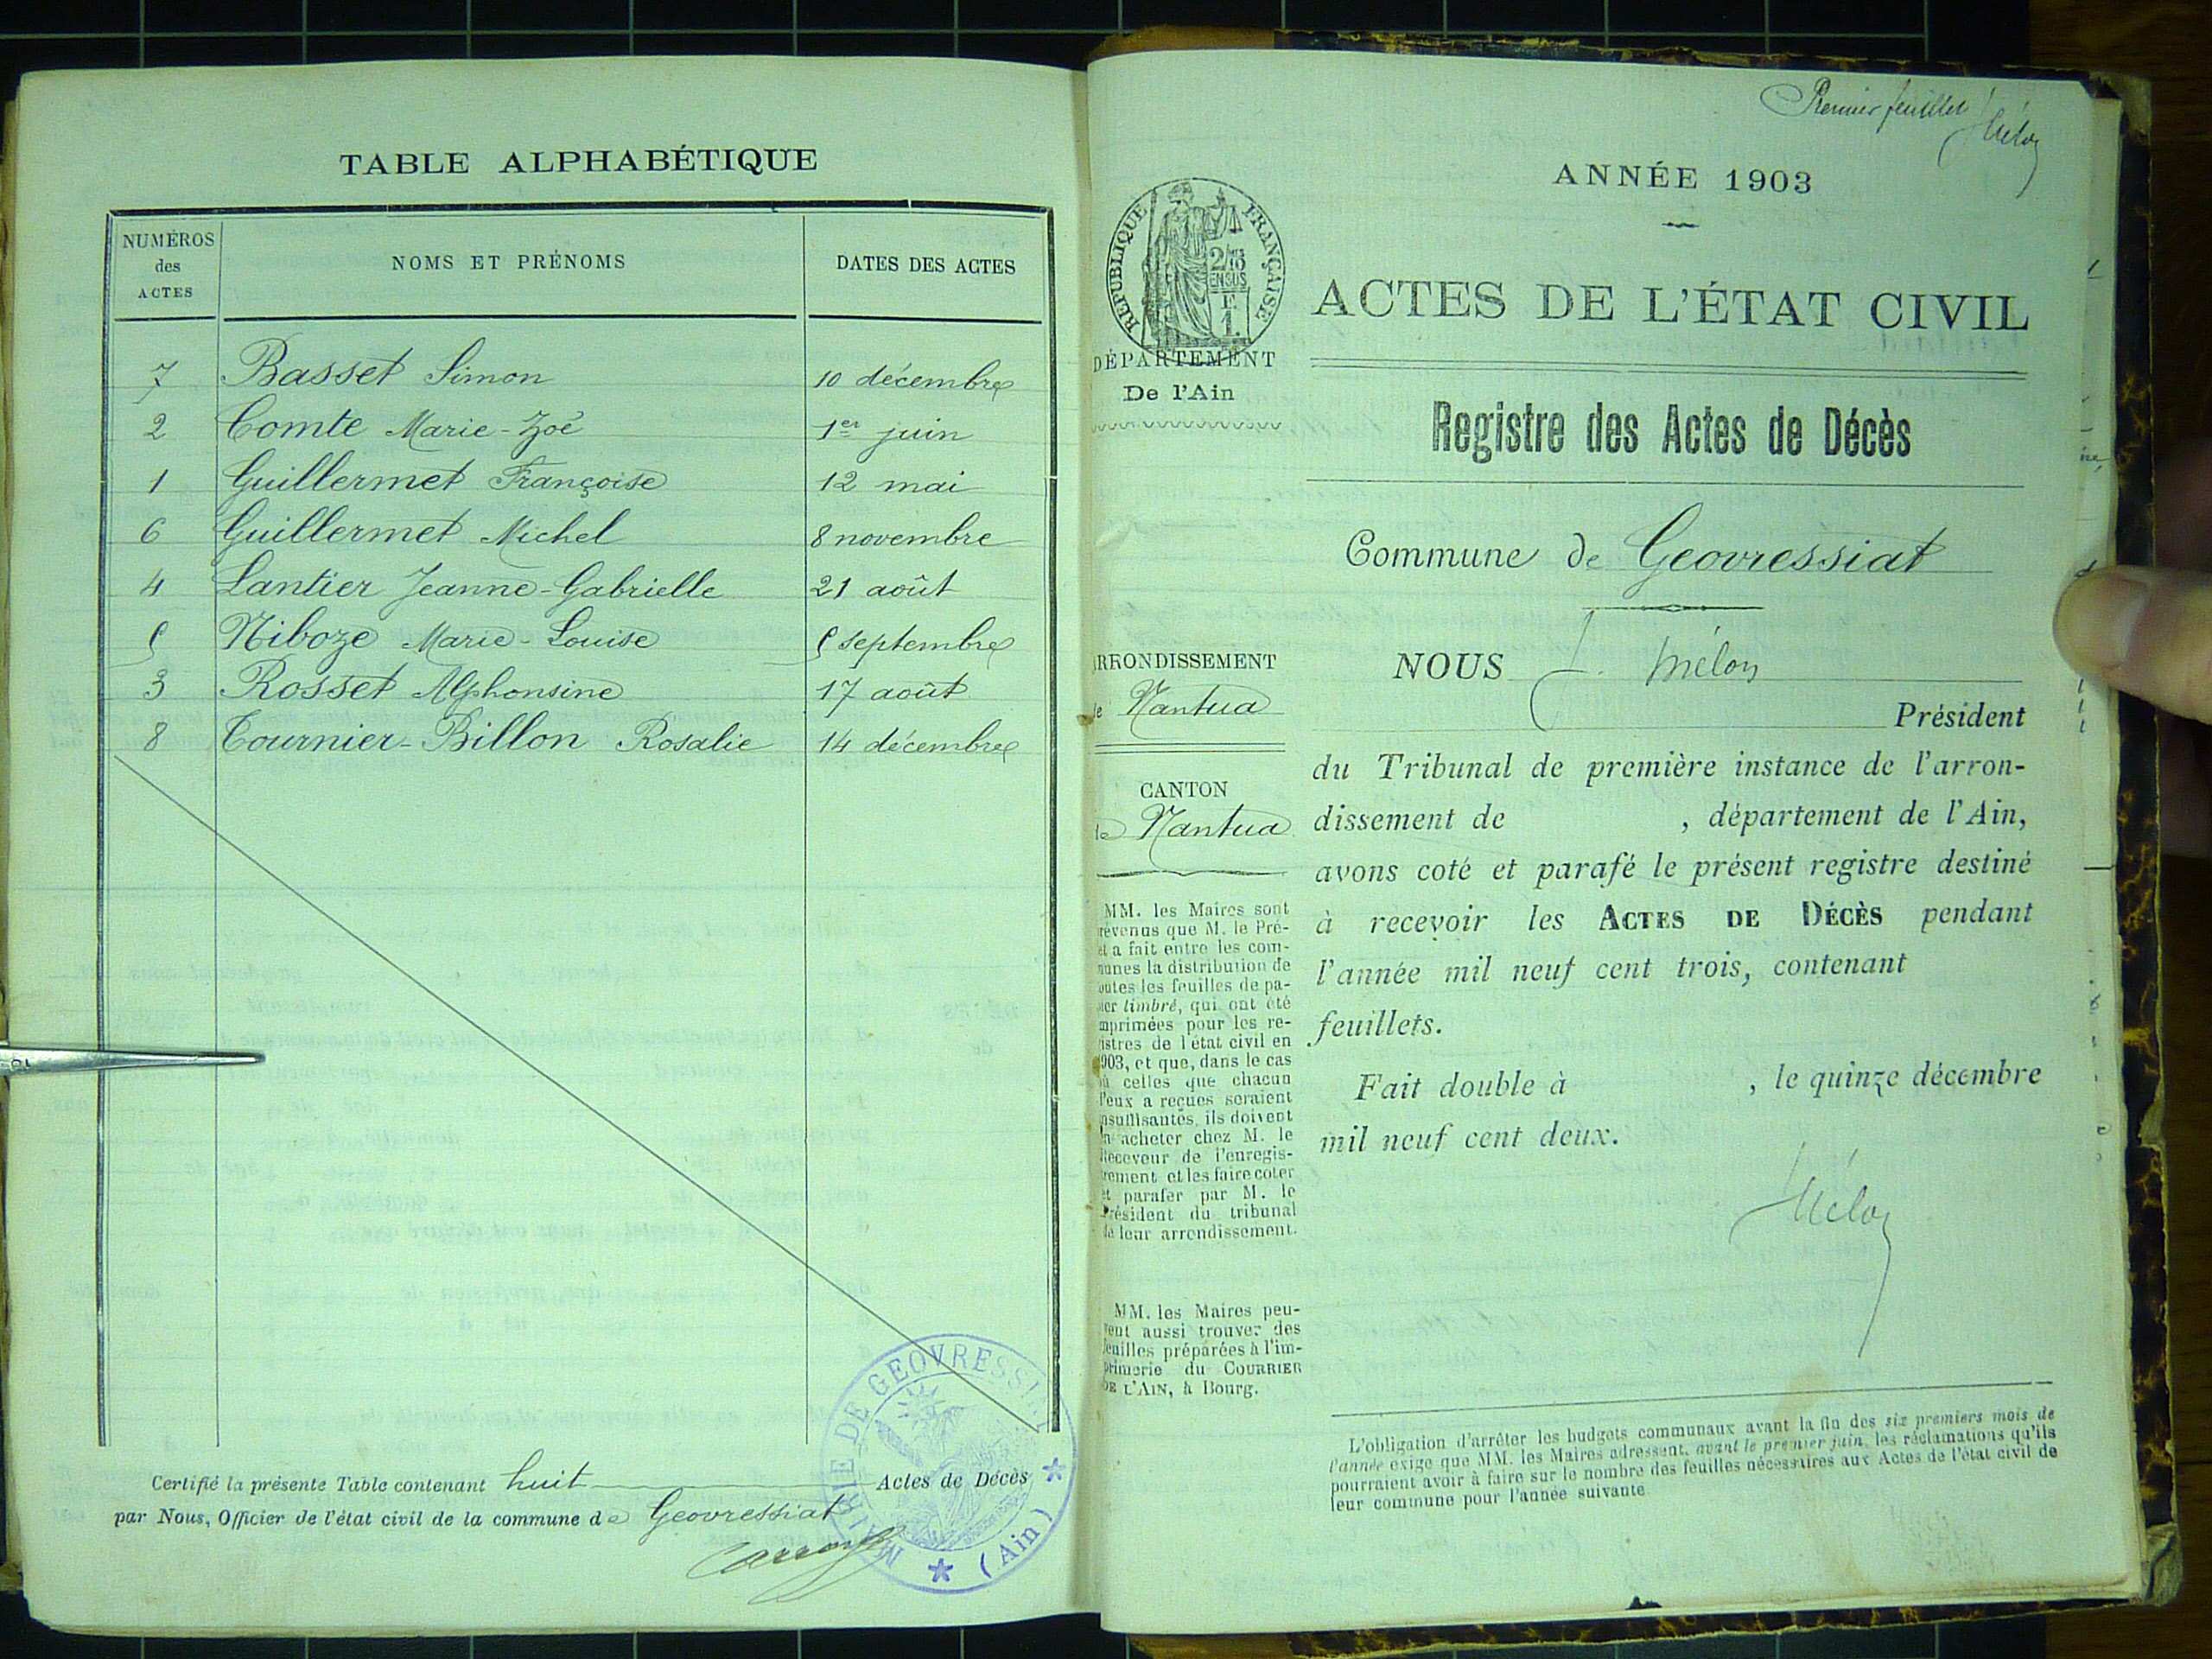 TABLE ALPHABÉTIQUE
NUMÉROS des ACTES NOMS ET PRÉNOMS DATES DES ACTES
7 Basset Simon 10 décembre
2 Comte Marie-Zoé 1er juin
1 Guillermet Françoise 12 mai
6 Guillermet Michel 8 novembre
4 Lantier Jeanne-Gabrielle 21 août
5 Niboze Marie-Louise 5 septembre
3 Rosset Alphonsine 17 août
8 Tournier-Billon Rosalie 14 décembre
Certifié la présente Table contenant huit Actes de Décès
par Nous, Officier de l'état civil de la commune de Geovressiat
MAIRIE DE GEOVRESSIAT
(Ain)
Premier feuillet
Méloz
ANNÉE 1903
RÉPUBLIQUE FRANÇAISE
ACTES DE L'ÉTAT CIVIL
DÉPARTEMENT
De l'Ain
Registre des Actes de Décès
Commune de Geovressiat
ARRONDISSEMENT
de Nantua
CANTON
de Nantua
MM. les Maires sont
révenus que M. le Pré-
et a fait entre les com-
munes la distribution de
outes les feuilles de pa-
ier timbré, qui ont été
mprimées pour les re-
istres de l'état civil en
903, et que, dans le cas
où celles que chacun
d'eux a reçues seraient
nsuffisantes, ils doivent
en acheter chez M. le
Receveur de l'enregis-
rement et les faire coter
et parafer par M. le
Président du tribunal
de leur arrondissement.
MM. les Maires peu-
vent aussi trouver des
feuilles préparées à l'im-
primerie du COURRIER
DE L'AIN, à Bourg.
NOUS J. Méloz
Président
du Tribunal de première instance de l'arron-
dissement de , département de l'Ain,
avons coté et parafé le présent registre destiné
à recevoir les ACTES DE DÉCÈS pendant
l'année mil neuf cent trois, contenant
feuillets.
Fait double à , le quinze décembre
mil neuf cent deux.
Méloz
L'obligation d'arrêter les budgets communaux avant la fin des six premiers mois de
l'année exige que MM. les Maires adressent, avant le premier juin, les réclamations qu'ils
pourraient avoir à faire sur le nombre des feuilles nécessaires aux Actes de l'état civil de
leur commune pour l'année suivante